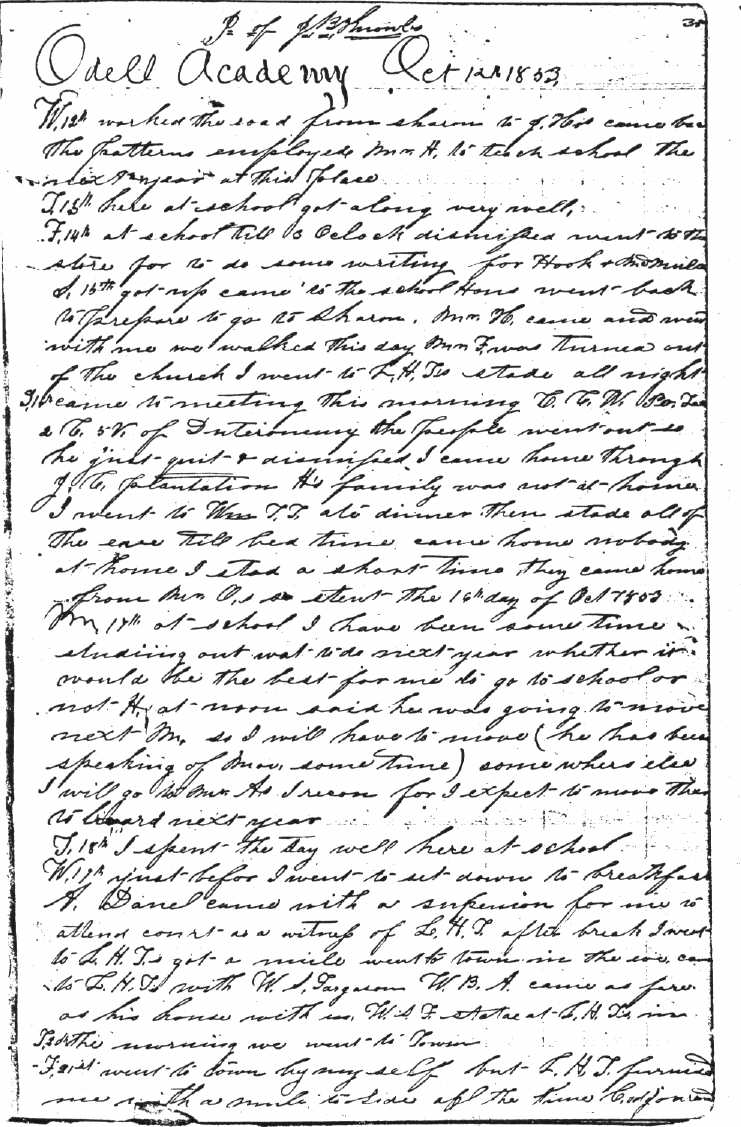 of
35
Odell Academy Oct 12th 1853
W. 12th worked the road from sharon to J. H's came
the patterns employed Mr. H. to teach school the
next year at this place
T. 13th here at school got along very well,
F. 14th at school till 3 Oclock dismissed went to the
store for to do some writing for Hook &
S. 15th got up came to the school Hous went back
to prepare to go to Sharon. Mr. H. came and went
with me we walked this day Mr. F. was turned out
of the church I went to L. H. T's stade all night
came to meeting this morning C. C. W.
2 C. 5 V. of Duteronemy the people went out so
he just quit & dismissed I came home through
J. C. plantation H's family was not at home
I went to Wm T. T. ate dinner then stade all of
the eave till bed time came home nobody
at home I stad a short time they came home
from Mr. O,s so spent the 16th day of Oct 1853
M. 17th at school I have been some time
studiing out wat to do next year whether it
would be the best for me to go to school or
not H, at noon said he was going to move
next M, so I will have to move (he has been
speaking of Mov. some time) some where else
I will go to Mr. As I recon for I expect to move there
to board next year
T. 18th I spent the day well here at school
W. 19th just befor I went to set down to breakfast
A. Danel came with a supenion for me to
attend court as a witness of L. H. T. after break I went
to L. H. T,s got a mule went to town in the eve, ca
to L. H. Ts with W. S. Farguson W. B. A. came as fare
as his house with us, W. S. F. at L. H. Ts in
T. 20th the morning we went to Town
F. 21st went to town by my self but L. H. T. furnised
me with a mule to ride all the time